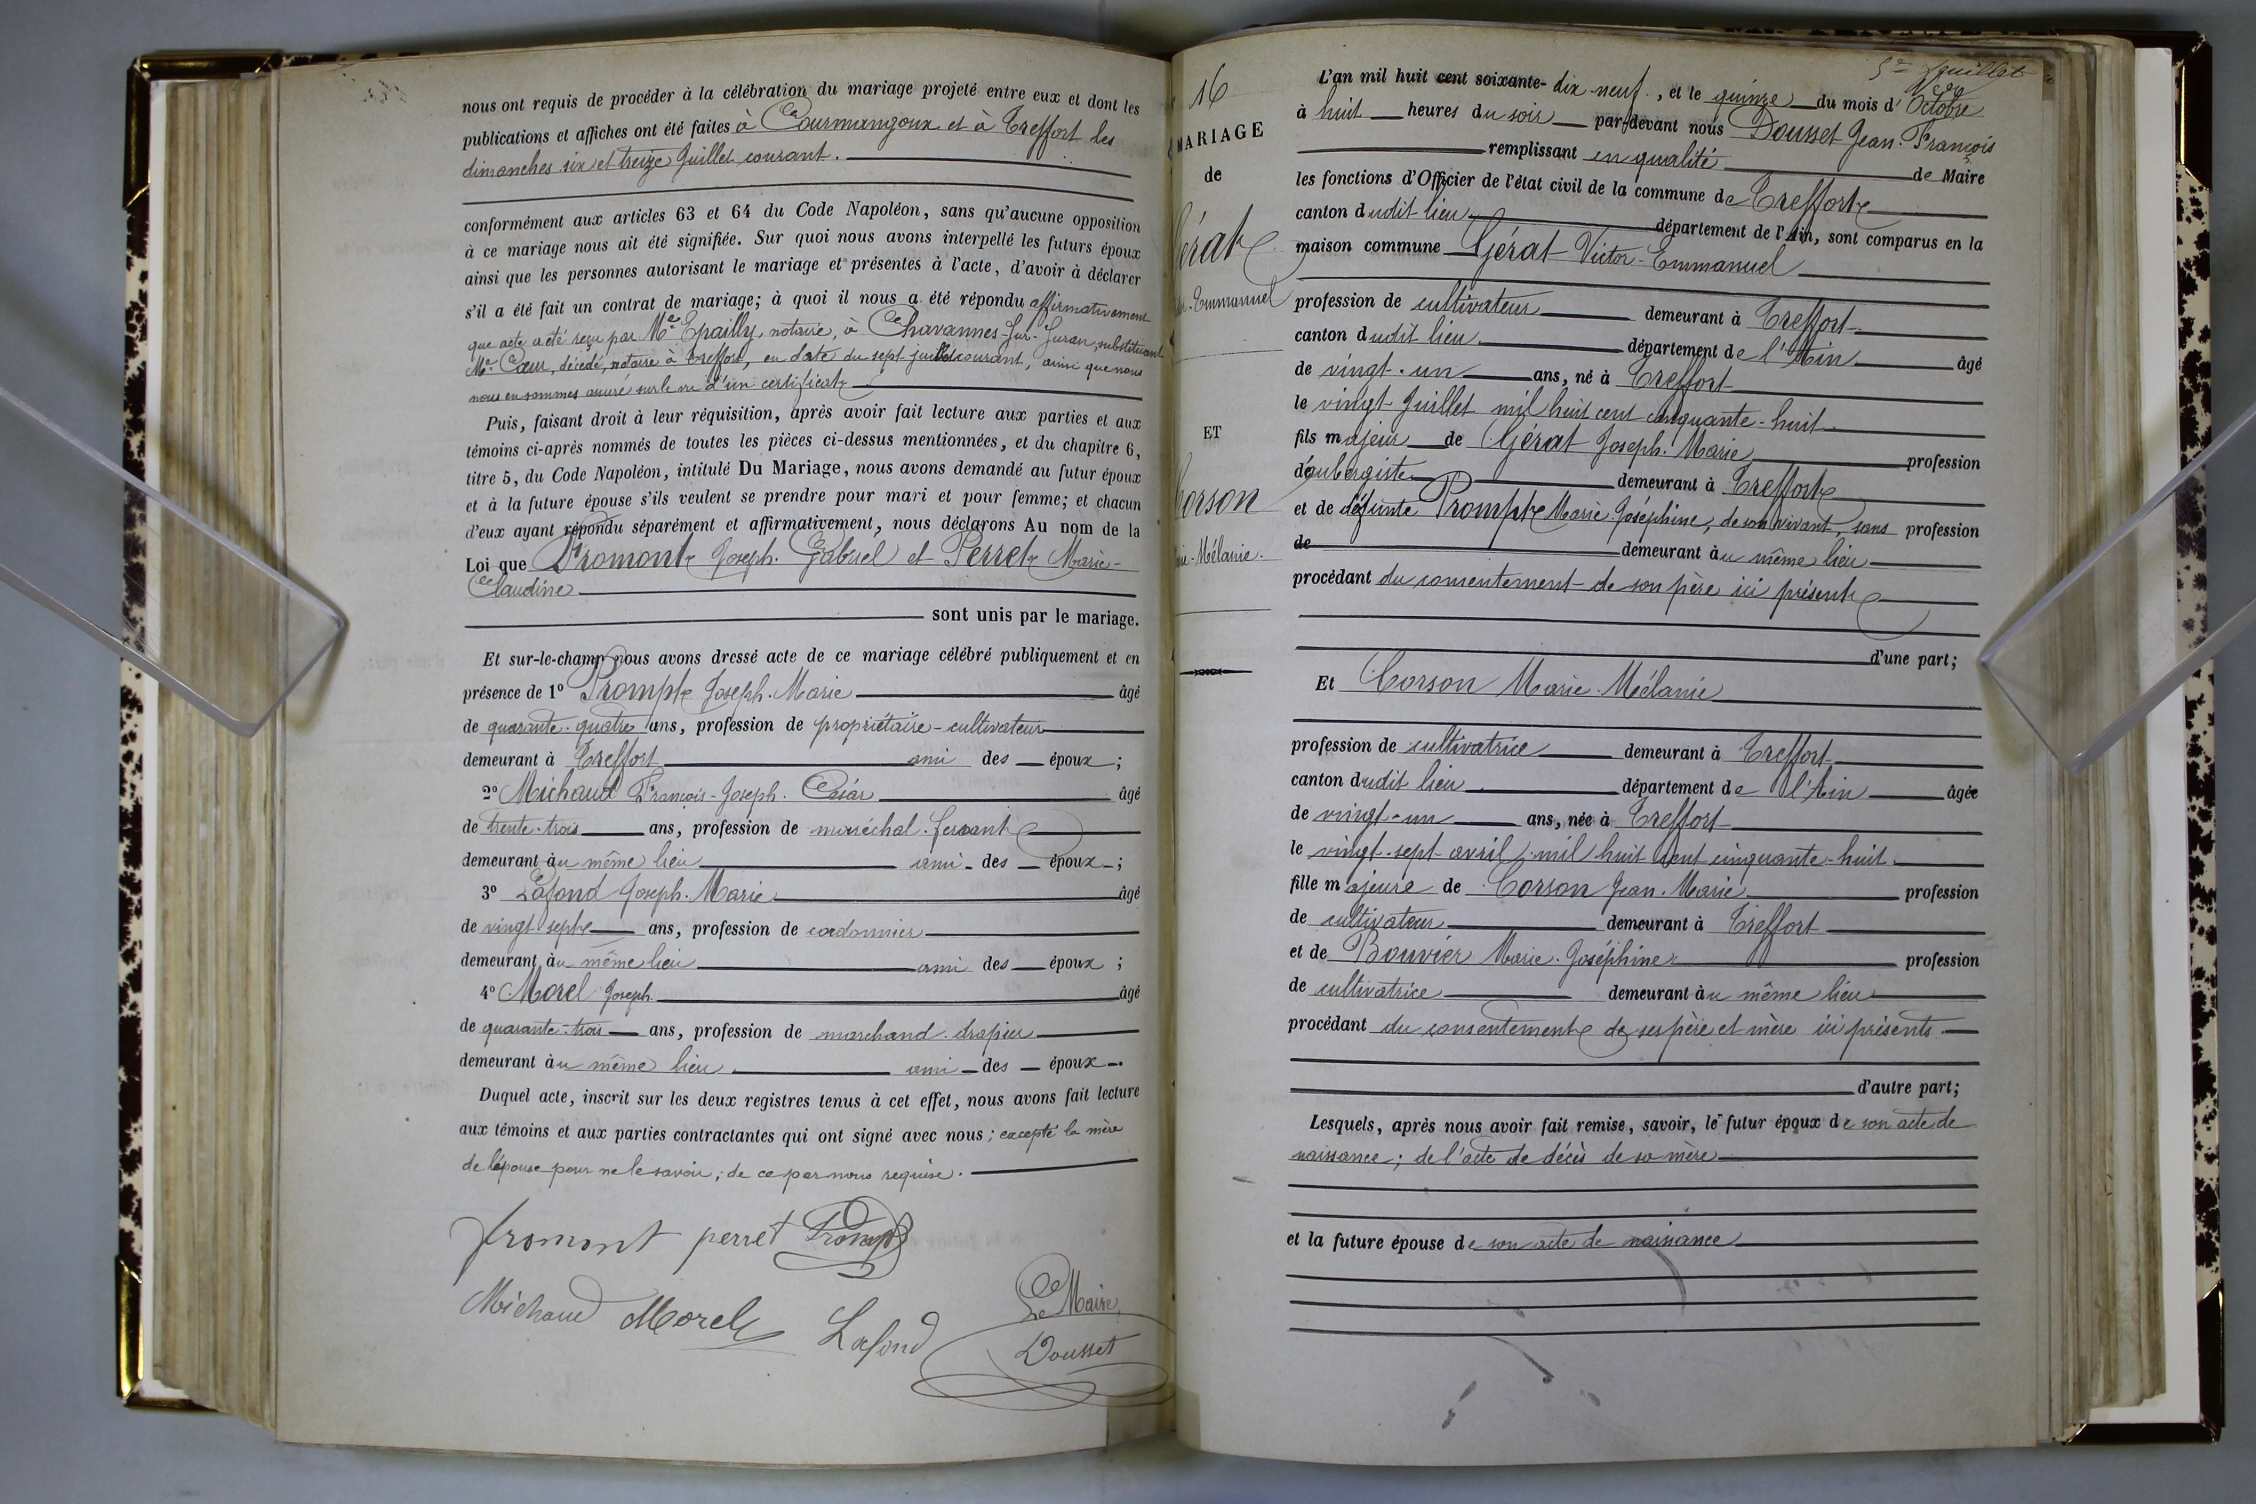 nous ont requis de procéder à la célébration du mariage projeté entre eux et dont les
publications et affiches ont été faites à Courmangoux et à Treffort les
dimanches six et treize Juillet courant.
conformément aux articles 63 et 64 du Code Napoléon, sans qu'aucune opposition
à ce mariage nous ait été signifiée. Sur quoi nous avons interpellé les futurs époux
ainsi que les personnes autorisant le mariage et présentes à l'acte, d'avoir à déclarer
s'il a été fait un contrat de mariage; à quoi il nous a été répondu affirmativement
que acte a été reçu par Me Epailly, notaire, à Chavannes-Sur-Suran, substituant
Me Cœur, décédé, notaire à Treffort, en date du sept juillet courant, ainsi que nous
nous en sommes assuré sur le vu d'un certificat
Puis, faisant droit à leur réquisition, après avoir fait lecture aux parties et aux
témoins ci-après nommés de toutes les pièces ci-dessus mentionnées, et du chapitre 6,
titre 5, du Code Napoléon, intitulé Du Mariage, nous avons demandé au futur époux
et à la future épouse s'ils veulent se prendre pour mari et pour femme; et chacun
d'eux ayant répondu séparément et affirmativement, nous déclarons Au nom de la
Loi que Fromont Joseph. Gabriel et Perret Marie-
Claudine
sont unis par le mariage.
Et sur-le-champ nous avons dressé acte de ce mariage célébré publiquement et en
présence de 1° Prompt Joseph. Marie âgé
de quarante-quatre ans, profession de propriétaire-cultivateur
demeurant à Treffort ami des époux;
2° Michaud François-Joseph. César âgé
de trente-trois ans, profession de maréchal-ferrant
demeurant au même lieu ami des époux;
3° Lafond Joseph. Marie âgé
de vingt sept ans, profession de cordonnier
demeurant au même lieu ami des époux;
4° Morel Joseph âgé
de quarante-trois ans, profession de marchand drapier
demeurant au même lieu ami des époux.
Duquel acte, inscrit sur les deux registres tenus à cet effet, nous avons fait lecture
aux témoins et aux parties contractantes qui ont signé avec nous; excepté la mère
de l'épouse pour ne le savoir; de ce par nous requise.
fromont perret Prompt
Michaud Morel Lafond
Le Maire,
Dousset
16
MARIAGE
de
Gérat
Emmanuel
ET
Corson
Mélanie.
Juillet
L'an mil huit cent soixante-dix neuf, et le quinze du mois d'Octobre
à huit heures du soir par-devant nous Dousset Jean-François
remplissant en qualité de Maire
les fonctions d'Officier de l'état civil de la commune de Treffort
canton dudit lieu département de l'Ain, sont comparus en la
maison commune Gérat Victor-Emmanuel
profession de cultivateur demeurant à Treffort
canton dudit lieu département de l'Ain âgé
de vingt-un ans, né à Treffort
le vingt Juillet mil huit cent cinquante-huit
fils majeur de Gérat Joseph. Marie profession
d'aubergiste demeurant à Treffort
et de défunte Prompt Marie Joséphine, de son vivant, sans profession
de demeurant au même lieu
procédant du consentement de son père ici présent
d'une part;
Et Corson Marie-Mélanie
profession de cultivatrice demeurant à Treffort
canton dudit lieu département de l'Ain âgée
de vingt-un ans, née à Treffort
le vingt-sept avril mil huit cent cinquante-huit
fille majeure de Corson Jean-Marie profession
de cultivateur demeurant à Treffort
et de Bouvier Marie-Joséphine profession
de cultivatrice demeurant au même lieu
procédant du consentement de ses père et mère ici présents
d'autre part;
Lesquels, après nous avoir fait remise, savoir, le futur époux de son acte de
naissance; de l'acte de décès de sa mère
et la future épouse de son acte de naissance